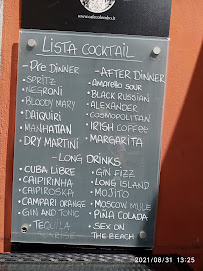 www.cafecolombo.it
LISTA COCKTAIL
-PRE DINNER
-AFTER DINNER
• SPRITZ
• NEGRONI
• BLOODY MARY
• DAIQUIRI
• MANHATTAN
• DRY MARTINI
• AMARETTO SOUR
• BLACK RUSSIAN
• ALEXANDER
• COSMOPOLITAN
• IRISH COFFEE
• MARGARITA
-LONG DRINKS
• CUBA LIBRE
• CAIPIRINHA
• CAIPIROSKA
• CAMPARI ORANGE
• GIN AND TONIC
• TEQUILA
SUNRISE
• GIN FIZZ
• LONG ISLAND
• MOJITO
• MOSCOW MULE
• PIÑA COLADA
• SEX ON
THE BEACH
2021/08/31 13:25